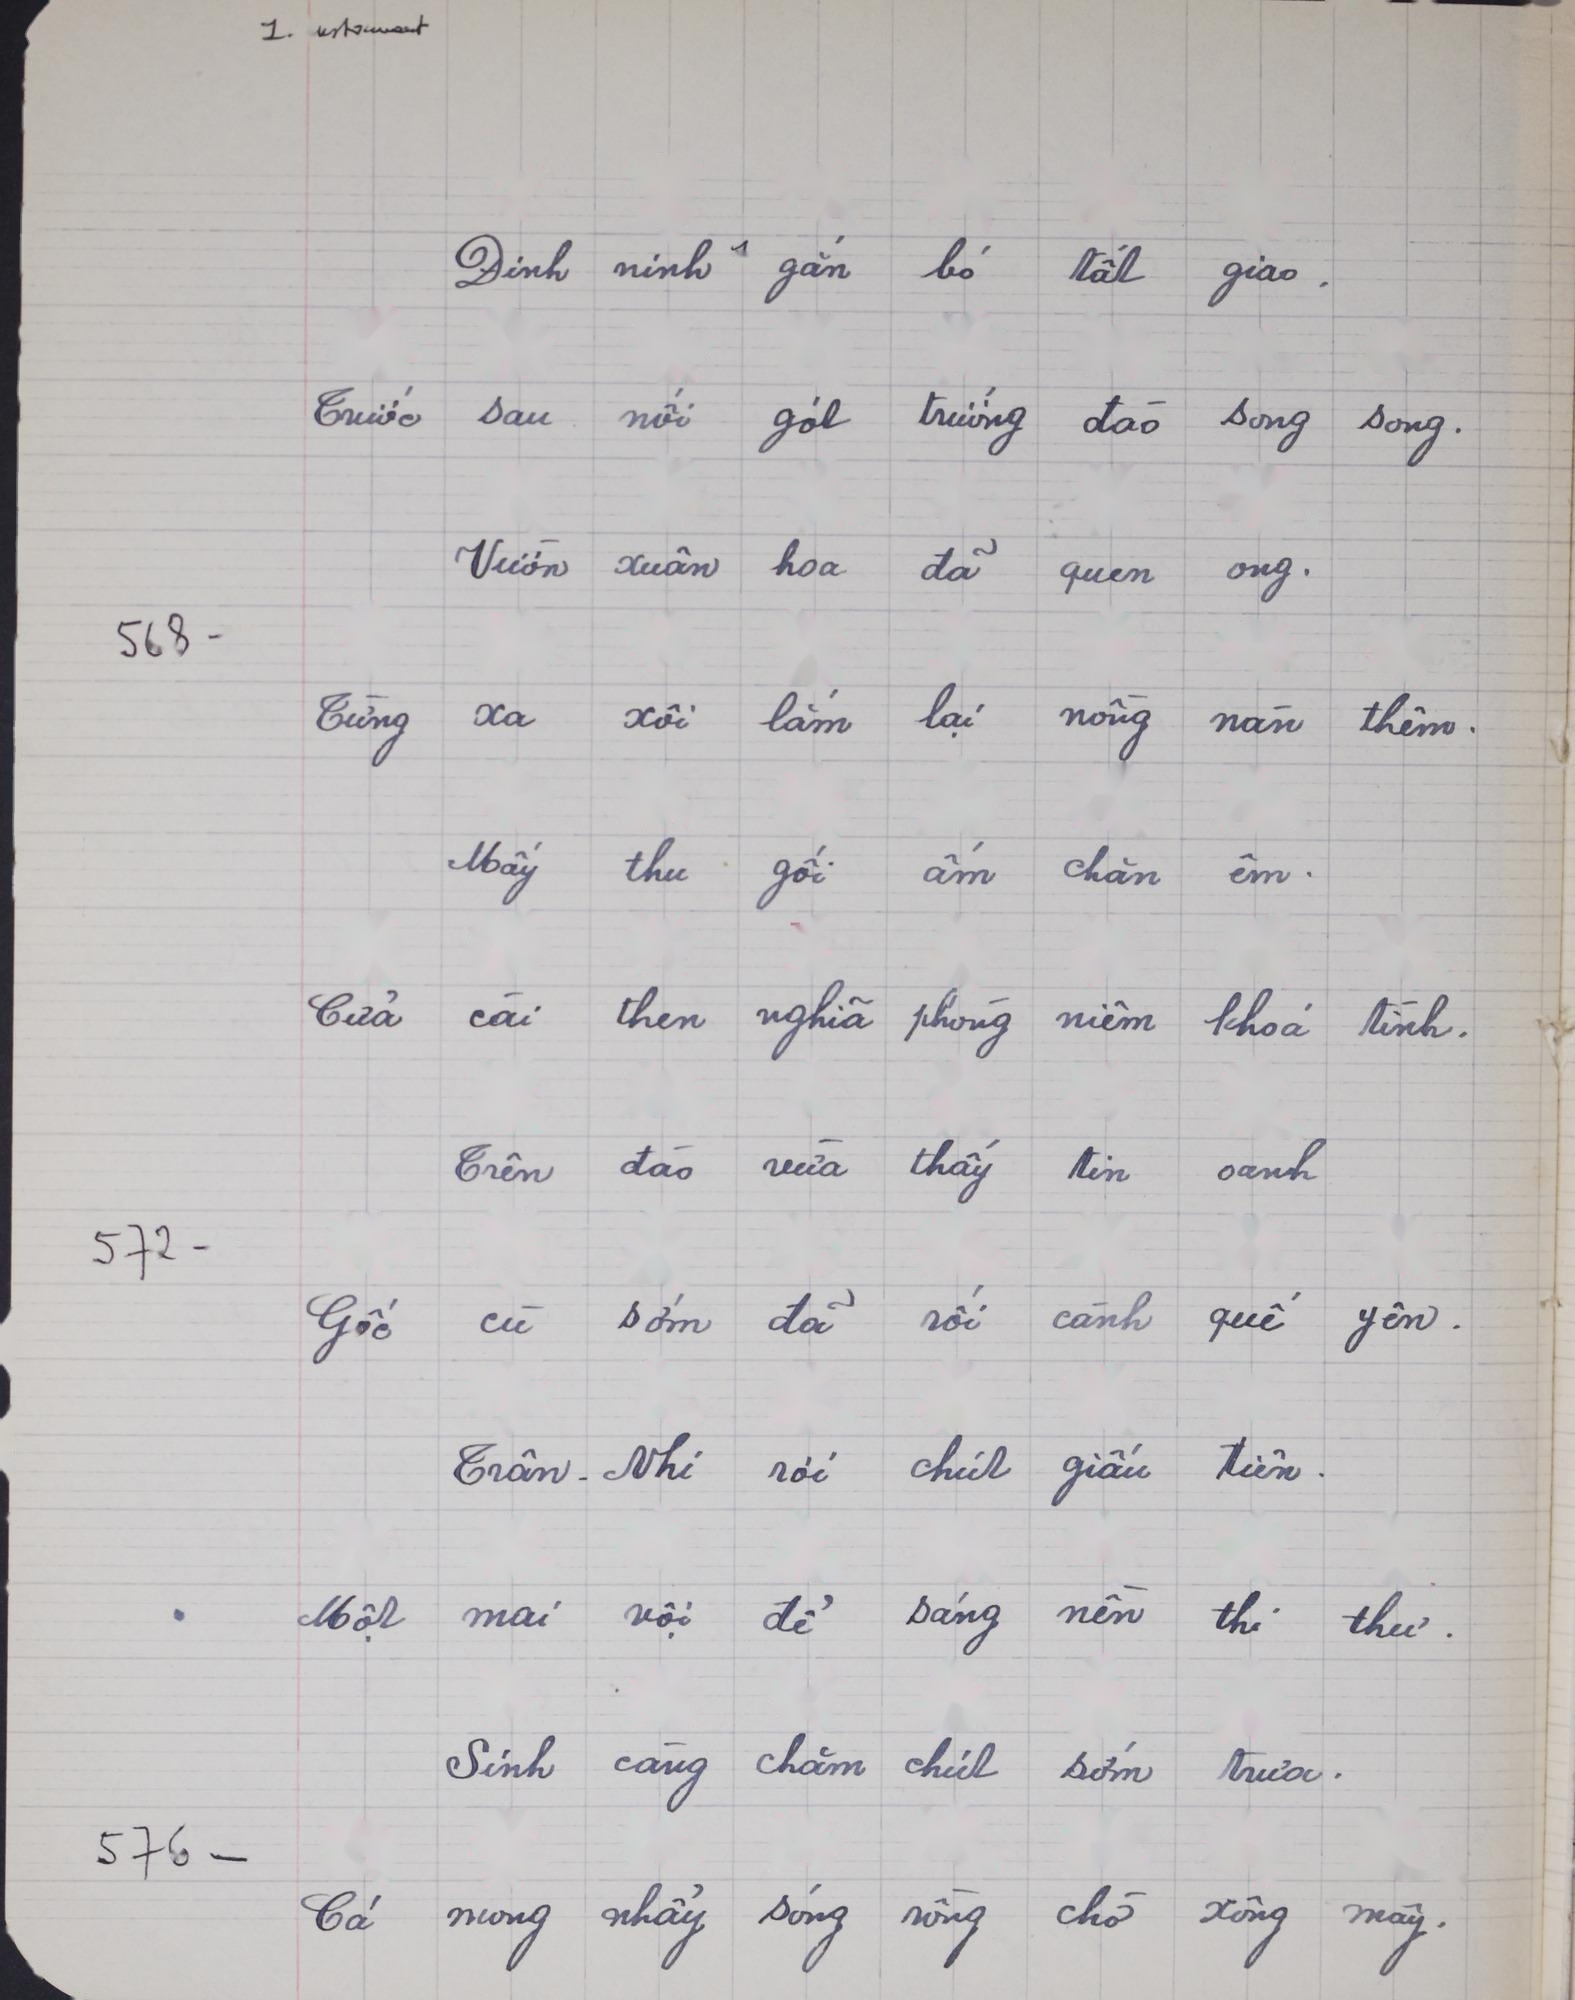 1.
Đinh ninh¹ gắn bó tất giao.
Trước sau nối gót trướng đào song song.
Vườn xuân hoa đã quen ong.
568-
Từng xa xôi lắm lại nồng nàn thêm.
Mấy thu gối ấm chăn êm.
Cửa cài then nghiã phòng niêm khoá tình.
Trên đào vừa thấy tin oanh
572-
Gốc cù sớm đã rối cành quế yên.
Trân-Nhi rói chút giấu tiên.
Một mai vội để sáng nền thi thư.
Sinh càng chăm chút sớm trưa.
576-
Cá mong nhẩy sóng rồng chờ xông mây.